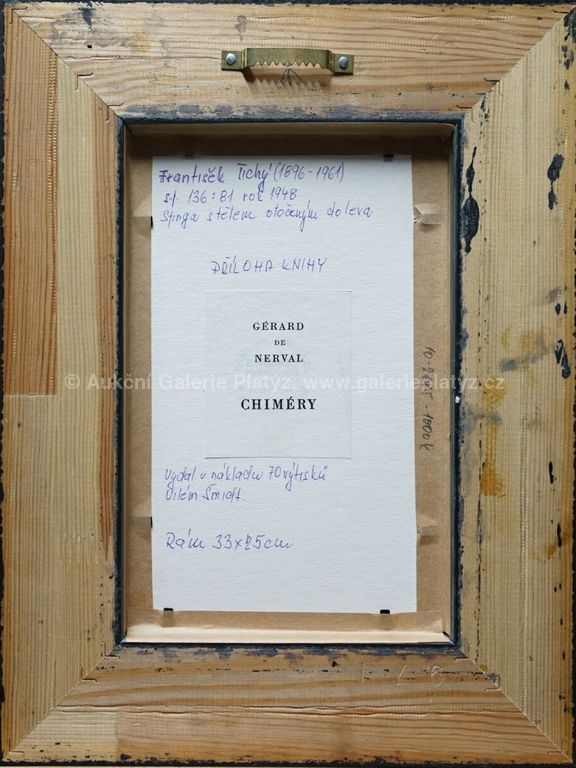 František Tichý (1896-1961)
sf. 136:81 rok 1948
Sfinga s tělem otočeným doleva
PŘÍLOHA KNIHY
GÉRARD
DE
NERVAL
CHIMÉRY
© Aukční Galerie Platýz, www.galerieplatyz.cz
Vydal v nákladu 70 výtisků
Vilém Šmidt.
Rám 33x25cm